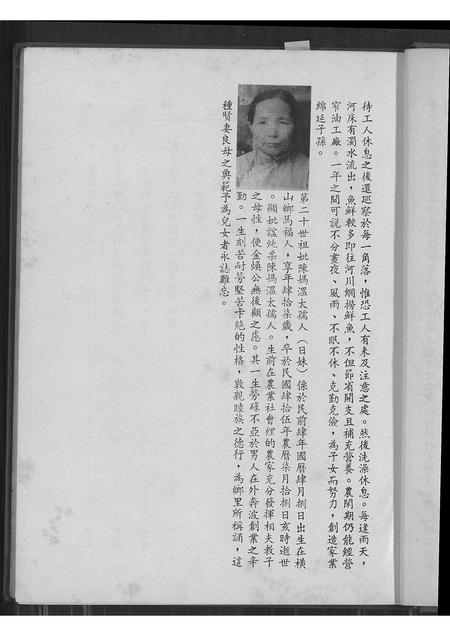 待工人休息之後還巡察於每一角落，惟恐工人有未及注意之處。然後洗澡休息。每逢雨天，
河床有濁水流出，魚鮮較多即往河川網撈鮮魚，不但節省開支且補充營養。農閑期仍能經營
窄油工廠。一年之間可說不分晝夜、風雨、不眠不休、克勤克儉，為子女而努力，創造家業
綿延子孫。
第二十世祖妣陳媽溫太孺人（日妹）係於民前肆年國曆肆月捌日出生在橫
山鄉馬福人，享年肆拾柒歲，卒於民國肆拾伍年農曆柒月拾捌日亥時逝世
。顯妣諡純柔陳媽溫太孺人。生前在農業社會裡的農家充分發揮相夫教子
之母性，使金煥公無後顧之慮。其一生勞碌不亞於男人在外奔波創業之辛
勤。一生刻苦耐勞堅苦卡絕的性格，敦親睦族之德行，為鄉里所稱誦，這
種賢妻良母之典範予為兒女者永誌難忘。